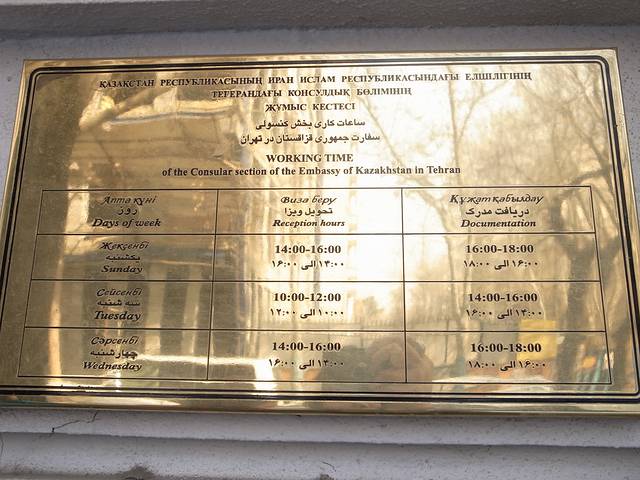 ҚАЗАҚСТАН РЕСПУБЛИКАСЫНЫҢ ИРАН ИСЛАМ РЕСПУБЛИКАСЫНДАҒЫ ЕЛШІЛІГІНІҢ
ТЕГЕРАНДАҒЫ КОНСУЛДЫҚ БӨЛІМІНІҢ
ЖҰМЫС КЕСТЕСІ
ساعات کاری بخش کنسولی
سفارت جمهوری قزاقستان در تهران
WORKING TIME
of the Consular section of the Embassy of Kazakhstan in Tehran
Апта күні
روز
Days of week
Виза беру
تحویل ویزا
Reception hours
Құжат қабылдау
دریافت مدرک
Documentation
Жексенбі
یکشنبه
Sunday
14:00-16:00
۱۴:۰۰ الی ۱۶:۰۰
16:00-18:00
۱۶:۰۰ الی ۱۸:۰۰
Сейсенбі
سه شنبه
Tuesday
10:00-12:00
۱۰:۰۰ الی ۱۲:۰۰
14:00-16:00
۱۴:۰۰ الی ۱۶:۰۰
Сәрсенбі
چهارشنبه
Wednesday
14:00-16:00
۱۴:۰۰ الی ۱۶:۰۰
16:00-18:00
۱۶:۰۰ الی ۱۸:۰۰